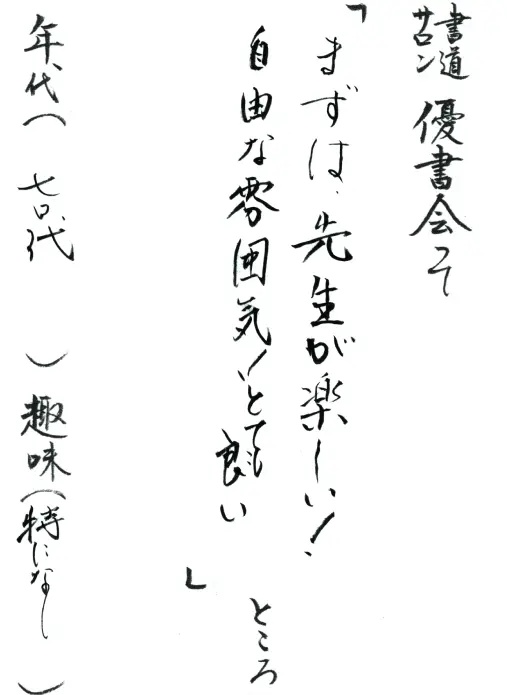 書道サロン 優書会って
「まずは、先生が楽しい!
自由な雰囲気!とても良い
」ところ
年代( 七〇代 ) 趣味(特になし )